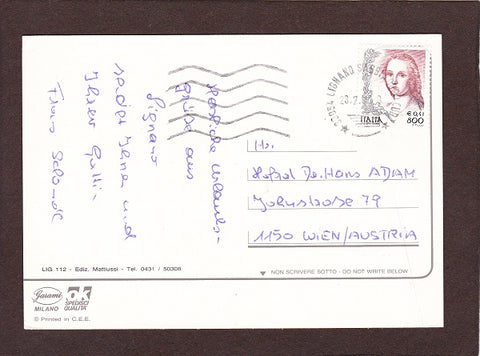 Herzliche Urlaubs-
grüße aus
Lignano
sendet Ihnen und
Ihrer Gattin
Franz
33054 LIGNANO SABB
ITALIA
€ 0,41
800
Hr.
Hofrat Dr. Hans ADAM
Johnstraße 79
1150 WIEN/AUSTRIA
LIG 112 - Ediz. Mattiussi - Tel. 0431 / 50308
NON SCRIVERE SOTTO - DO NOT WRITE BELOW
Garami
MILANO
OK
SPEDISCI
QUALITA'
© Printed in C.E.E.